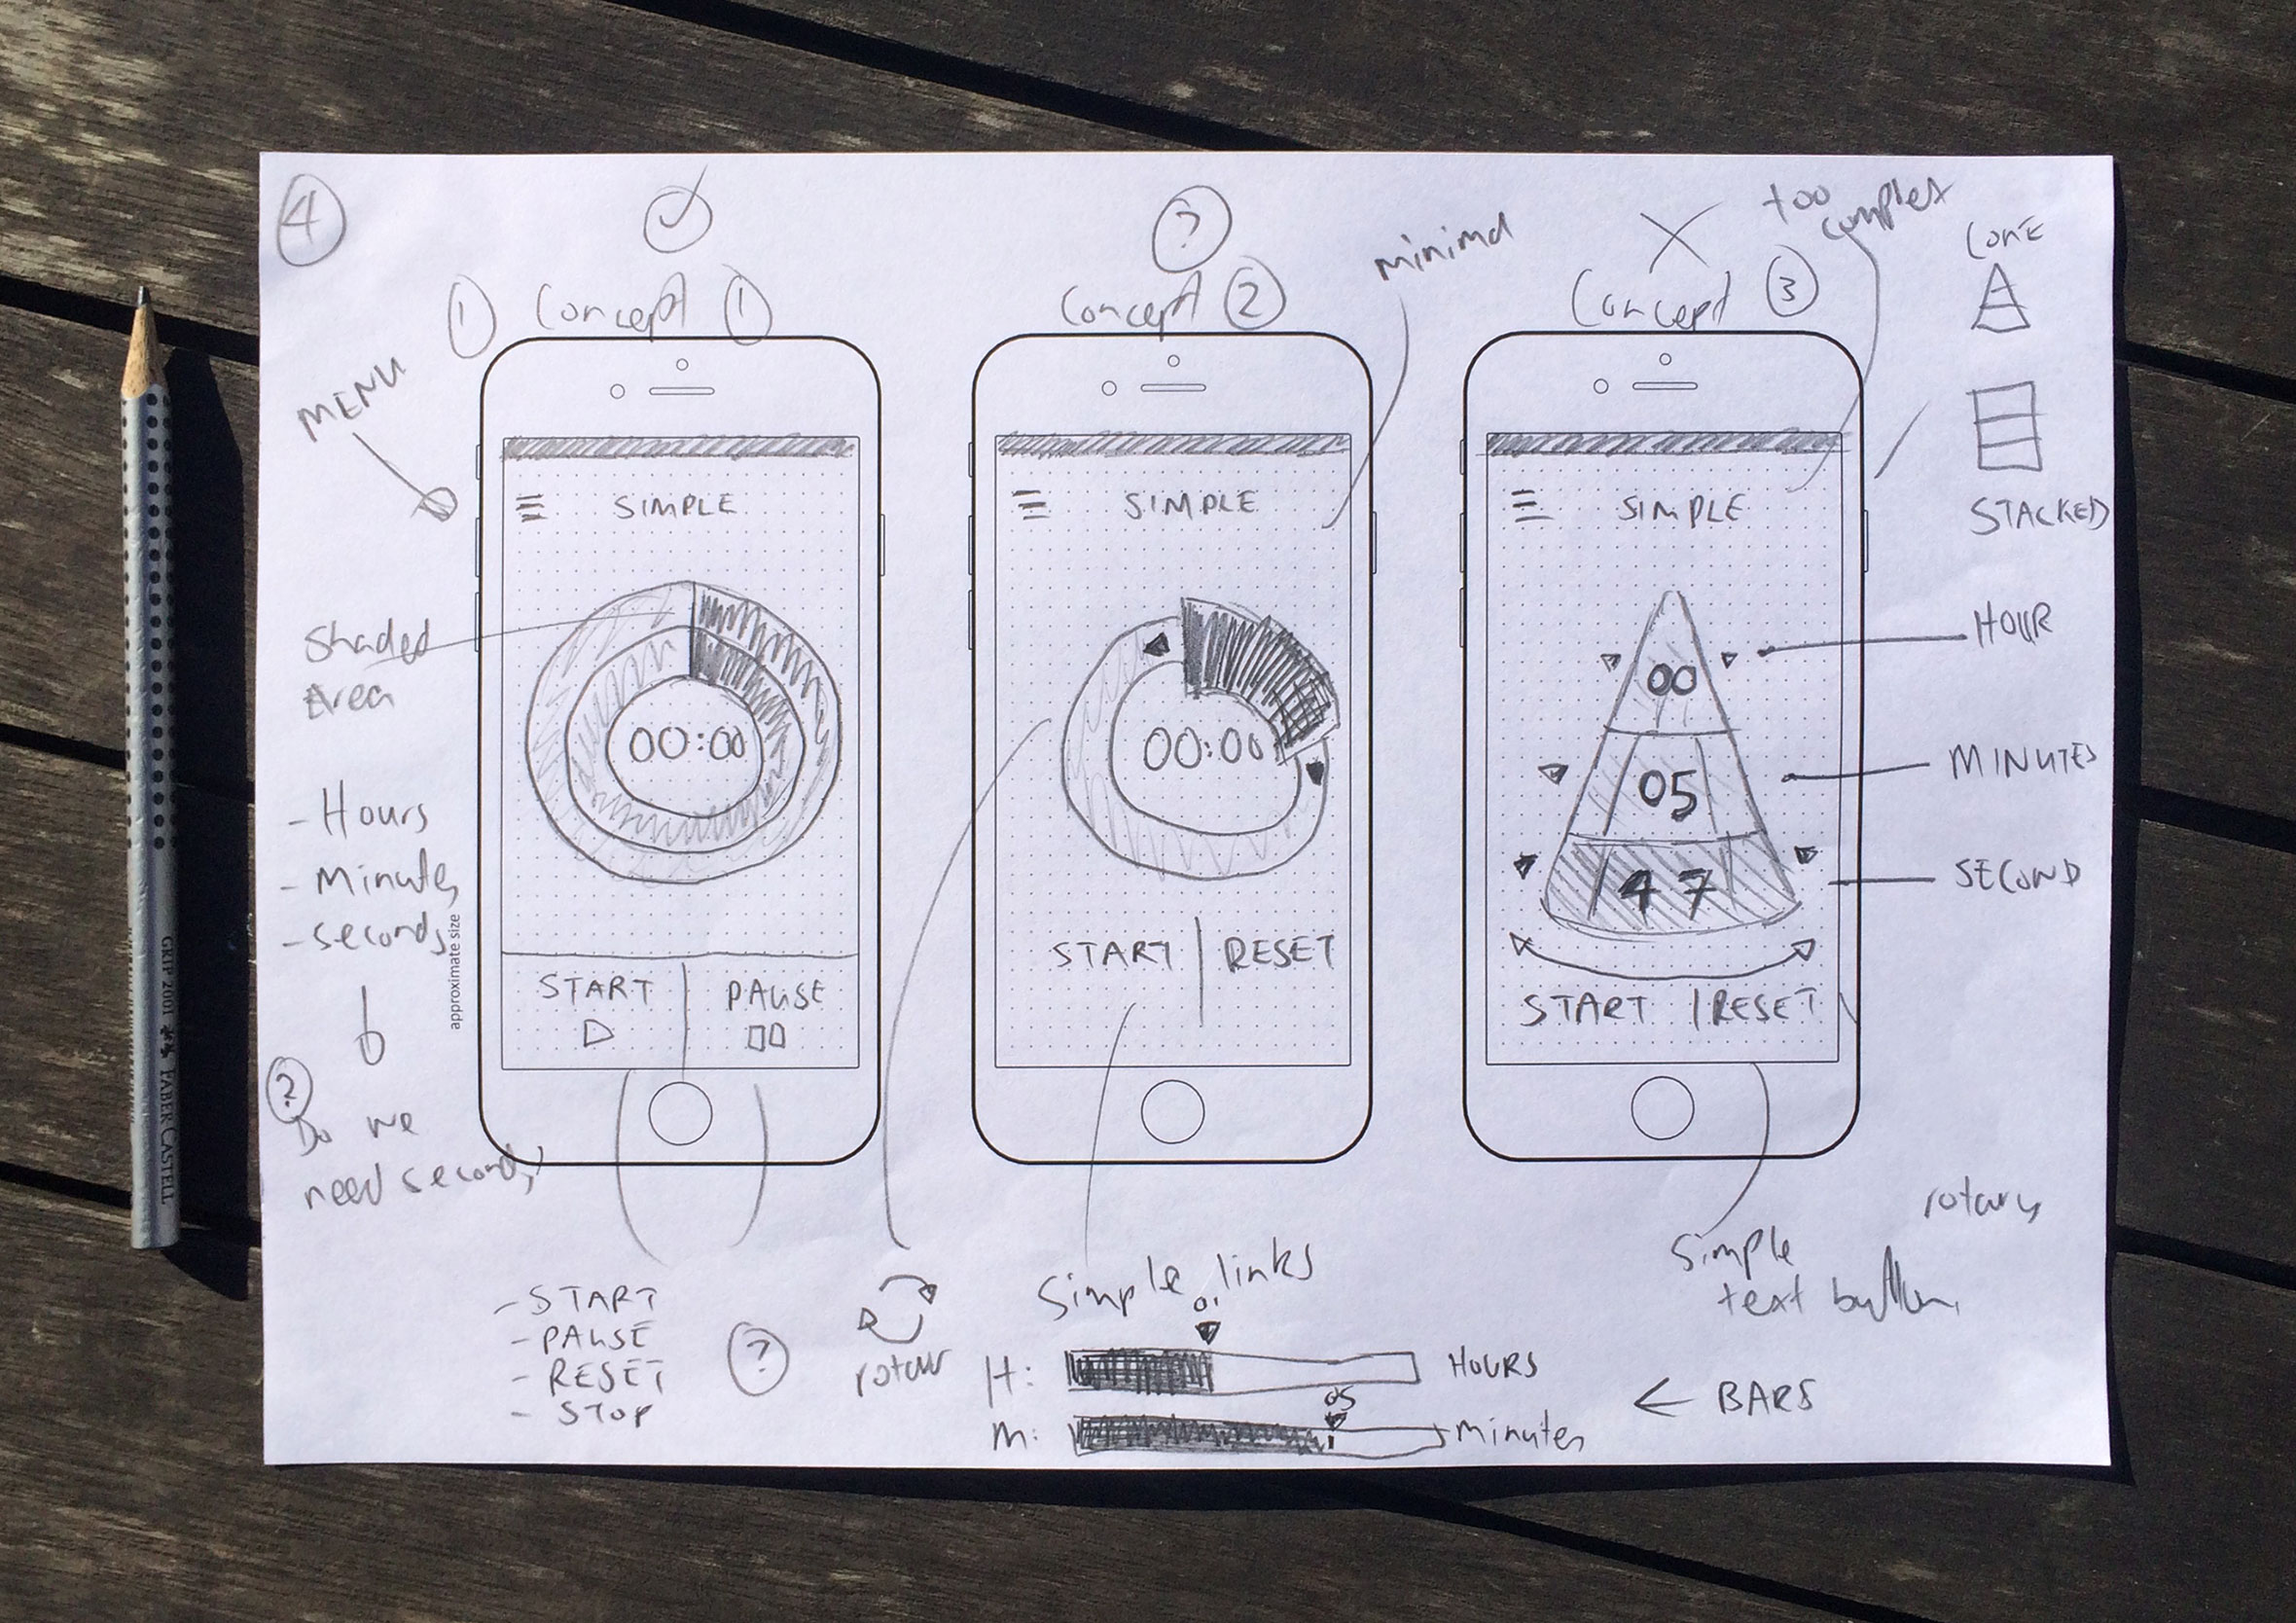 4
?
too
complex
minimal
CONE
1
Concept 1
Concept 2
Concept 3
MENU
SIMPLE
SIMPLE
SIMPLE
STACKED
Shaded
Area
HOUR
00
00:00
00:00
MINUTES
05
- Hours
- Minutes
- Seconds
SECOND
47
START
RESET
START
PAUSE
START | RESET
approximate size
GRIP 2001 FABER-CASTELL
?
Do we
need seconds
rotary
Simple
text button
Simple links
- START
- PAUSE
- RESET
- STOP
?
H:
HOURS
05
M:
Minutes
← BARS